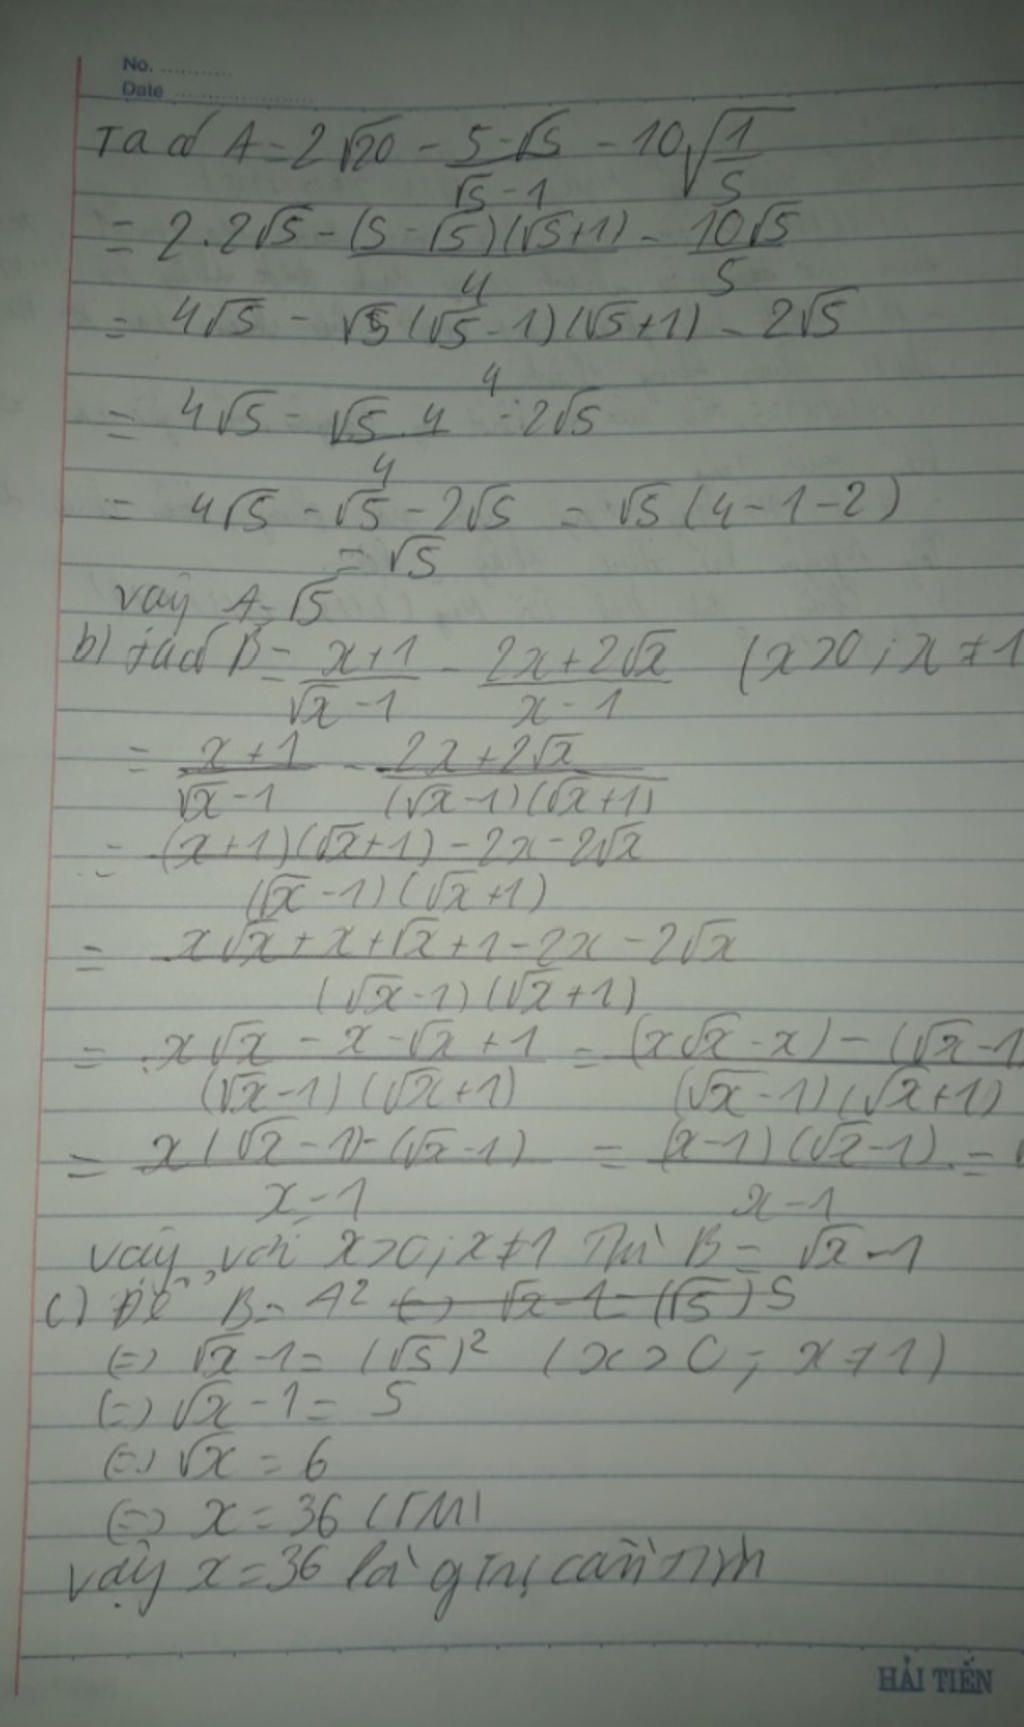 No. ...........
Date ......................
Ta có A = 2√20 - (5-√5)/(√5-1) - 10√(1/5)
= 2.2√5 - (5-√5)(√5+1)/4 - 10√5/5
= 4√5 - √5(√5-1)(√5+1)/4 - 2√5
= 4√5 - √5.4/4 - 2√5
= 4√5 - √5 - 2√5 = √5(4-1-2)
= √5
vậy A = √5
b) ta có B = (x+1)/(√x-1) - (2x+2√x)/(x-1) (x>0; x≠1
= (x+1)/(√x-1) - (2x+2√x)/((√x-1)(√x+1))
= ((x+1)(√x+1)-2x-2√x)/((√x-1)(√x+1))
= (x√x+x+√x+1-2x-2√x)/((√x-1)(√x+1))
= (x√x-x-√x+1)/((√x-1)(√x+1)) = ((x√x-x)-(√x-1)/((√x-1)(√x+1))
= (x(√x-1)-(√x-1))/(x-1) = ((x-1)(√x-1))/(x-1) =
vậy, với x>0; x≠1 thì B = √x-1
c) Để B = A²
(=) √x-1 = (√5)² (x>0; x≠1)
(=) √x-1 = 5
(=) √x = 6
(=) x = 36 (TM)
vậy x=36 là gtrị cần tìm
HẢI TIẾN